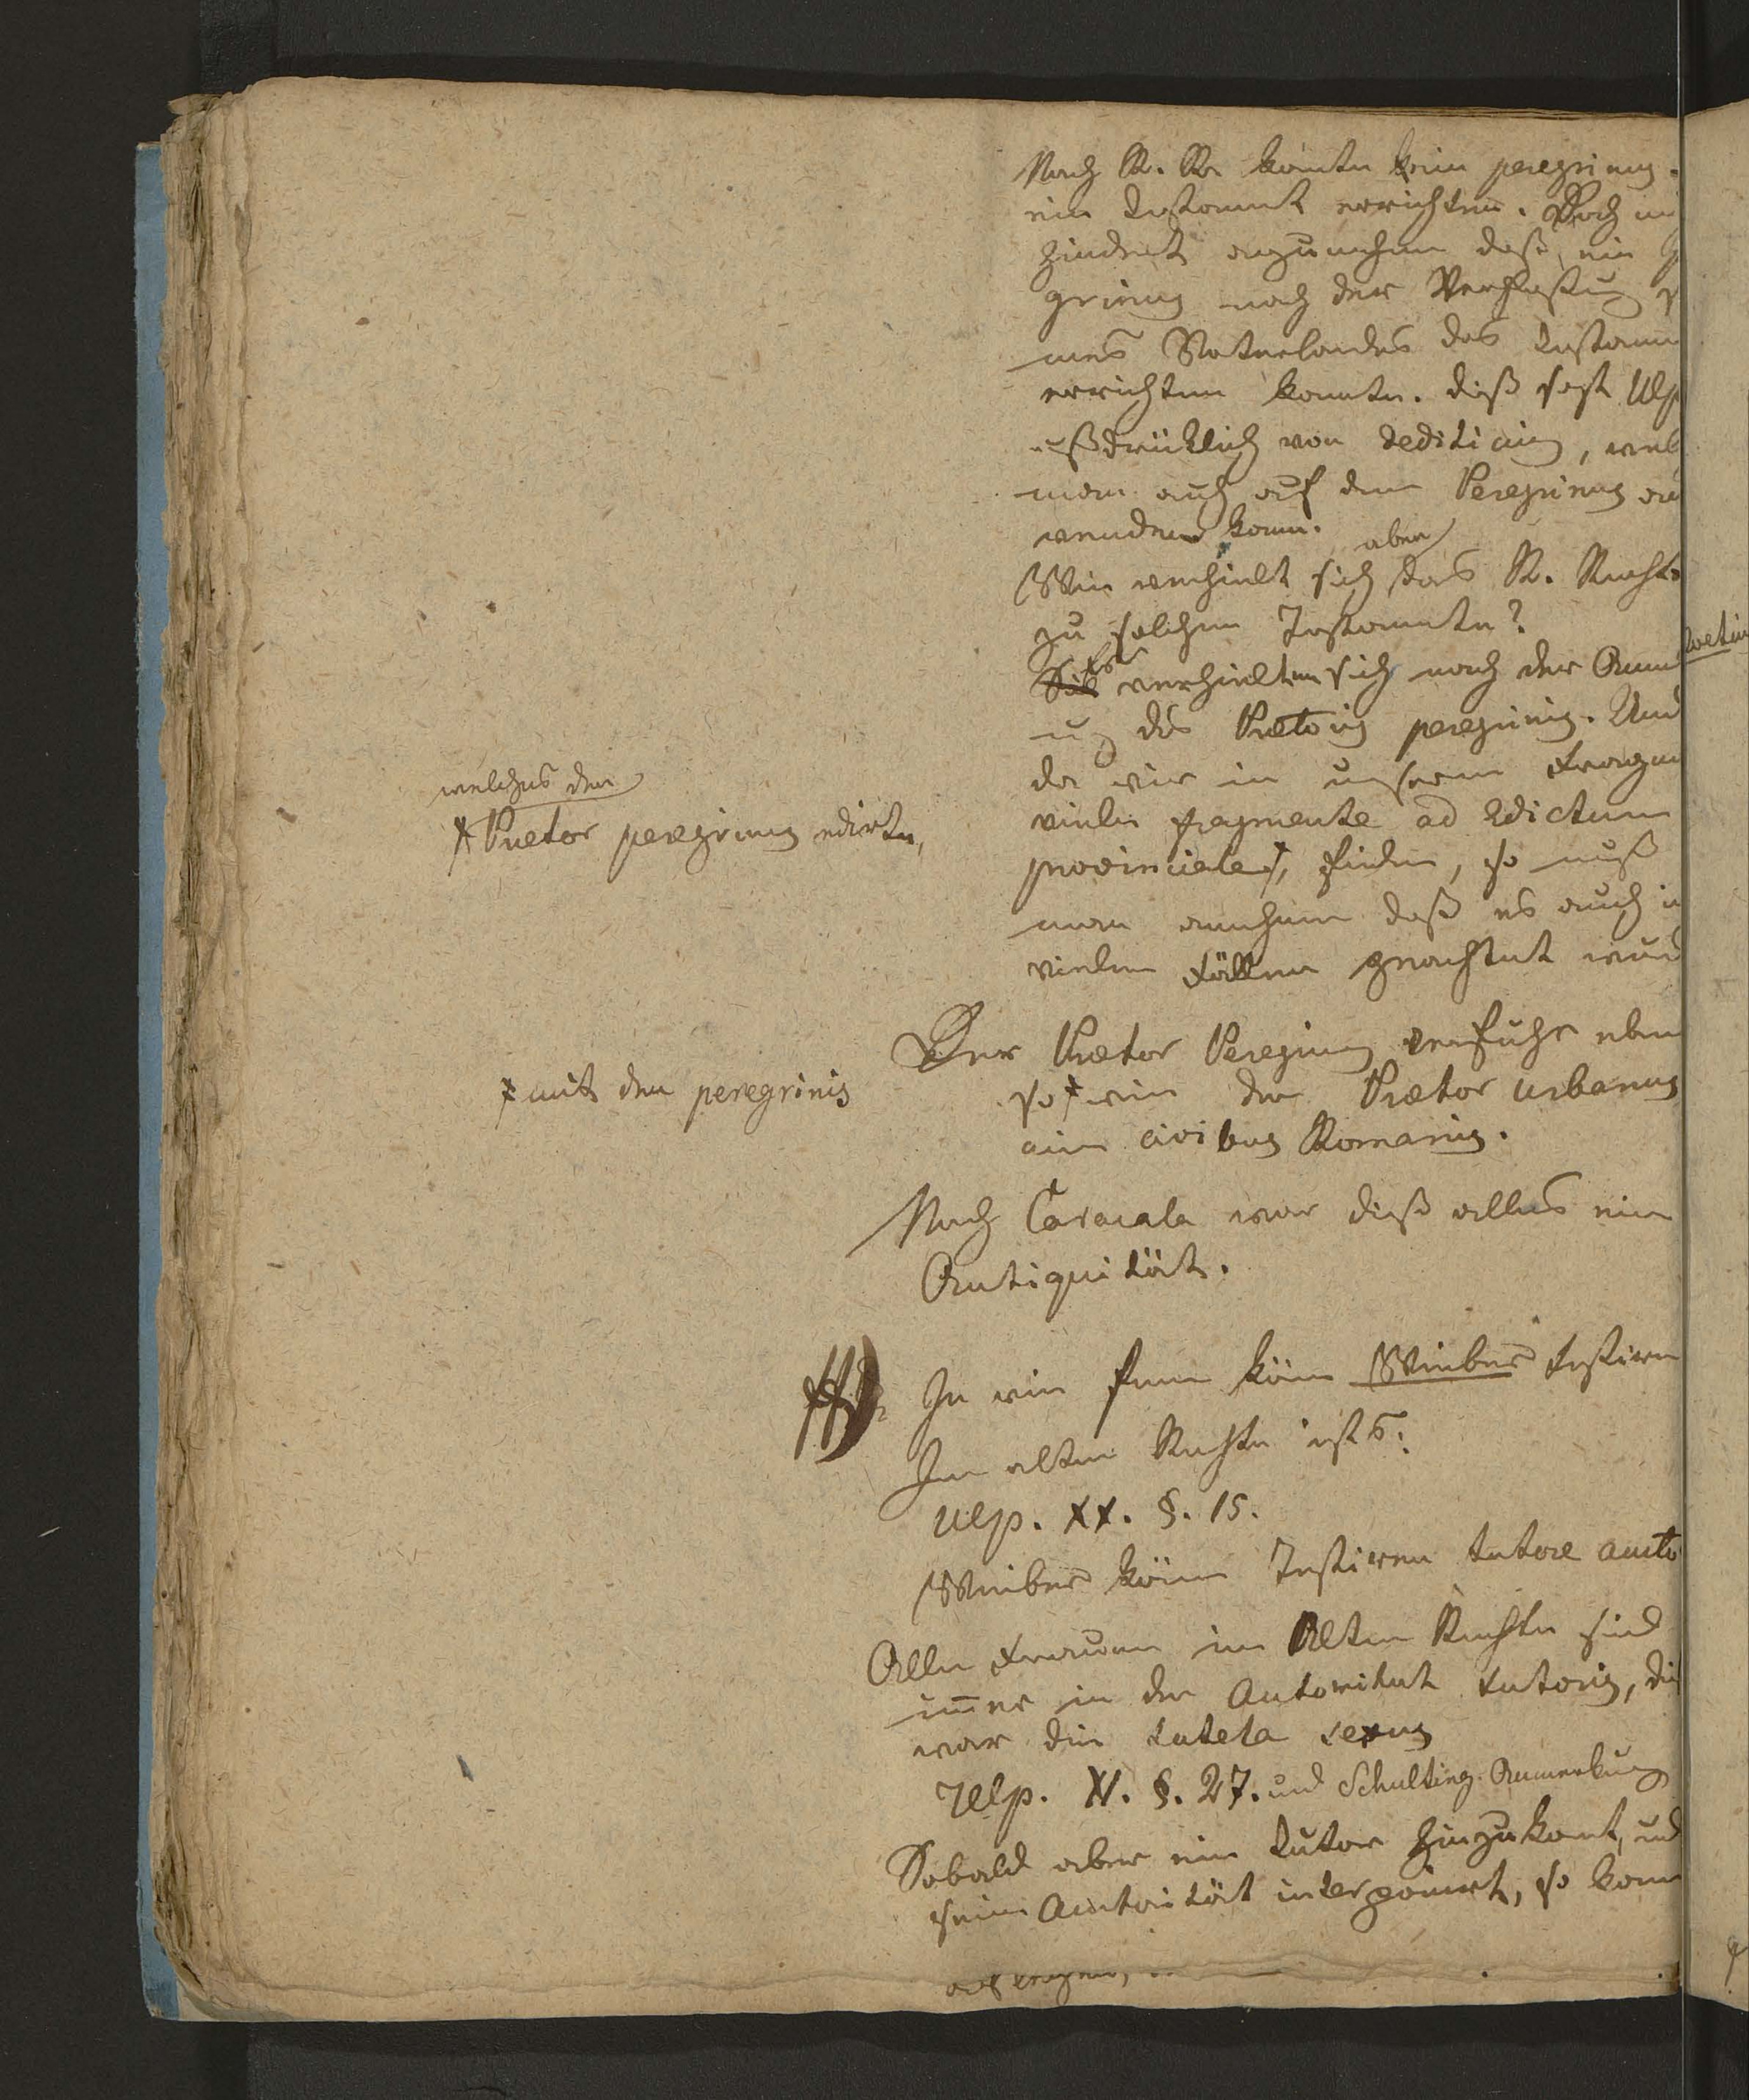 Nach R. R. konnte kein peregrinus
ein Testament errichten. Doch
hindert anzunehmen daß ein
grinus nach der Verfaßung
nes Vaterlandes das Testam
errichten konnte. dieß sagt Ulp
außdrücklich von dediticius, wel
man auch auf den Peregrinus an
wenden kann.
Wie verhielt sich aber das R. Recht
zu solchen Testamenten?
Es verhielten sich nach der
des Praetoris peregrini. Und
da wir in unseren Fragm
viele fragmente ad Edictum
provinciale ⚹, finden, so muß
man annehmen daß es auch i
vielen Fällen geachtet wur
welches der
⚹ Praetor peregrinus edirte,
Der Praetor Peregrinus verfuhr eben
so ⚹ wie der Praetor urbanus
civibus Romanis.
⚹ mit den peregrinis
Nach Caracala war dieß alles eine
Antiquität.
In wie fern könn Weiber testiren
Im alten Rechte ists:
Ulp. XX. §. 15.
Weiber könn Testiren tutore aucto
Alle Frauen im Alten Rechte sind
immer in der Autoritaet tutoris, die
war die tutela sexus
Ulp. XI. §. 27. und Schulting Anmerkung
Sobald aber ein Tutor hinzukomt, und
seine Autorität interponirt, so kann